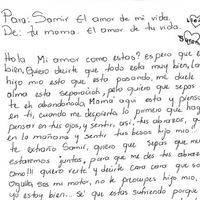 Para: Samir El amor de mi vida.
De: tu mama. El amor de tu vida.
Hola Mi amor como estas? es pero que e
bien, Quiero decirte que todo esta muy bien, La
hijo mio esto que esta pasando, me duele
alma esta separación, pelo quiero que sepas
te eh abandonado, Mamá aqui esta y piensa
en ti, cuando me despierto lo primero que hag
pensar en tus ojos, y sentir, asi: tus abrazos, q
en la mañana y sentir tus besos hijo mio!
te extraño Samir, quiero que sepas que mu
estaremos juntas, para que me des tus abraz
amo!!! quiero verte y decirte cara cara que so
orgullo, sos mi motor, no te preocupes hijo mio,
yo estoy bien... se' que estas sufriendo porque